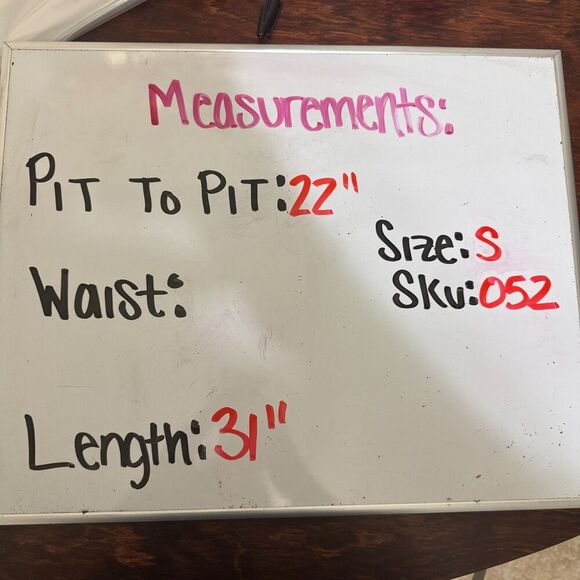 Measurements:
Pit To Pit: 22"
Size: S
Waist:
Sku: 052
Length: 31"